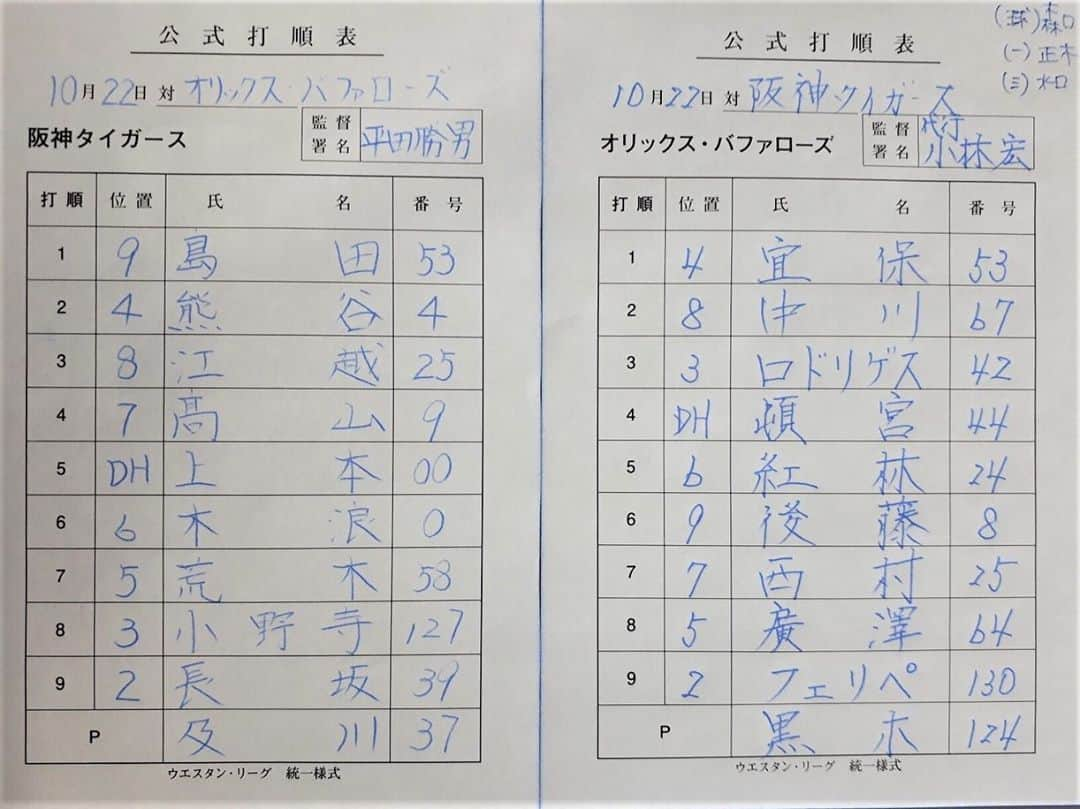 公式打順表
10月22日 対 オリックス・バファローズ
阪神タイガース 監督署名 平田勝男
打順 位置 氏名 番号
1 9 島田 53
2 4 熊谷 4
3 8 江越 25
4 7 髙山 9
5 DH 上本 00
6 6 木浪 0
7 5 荒木 58
8 3 小野寺 127
9 2 長坂 39
P 及川 37
ウエスタン・リーグ 統一様式
(球)森口
(一)正木
(三)水口
公式打順表
10月22日 対 阪神タイガース
オリックス・バファローズ 監督署名 代行 小林宏
打順 位置 氏名 番号
1 4 宜保 53
2 8 中川 67
3 3 ロドリゲス 42
4 DH 頓宮 44
5 6 紅林 24
6 9 後藤 8
7 7 西村 25
8 5 廣澤 64
9 2 フェリペ 130
P 黒木 124
ウエスタン・リーグ 統一様式